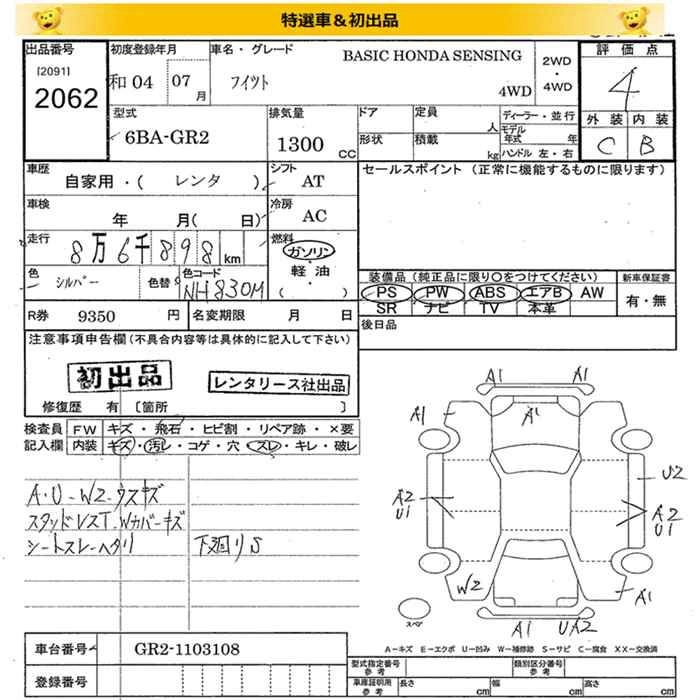 特選車＆初出品
出品番号 初度登録年月 車名・グレード 2WD・4WD 評価点
[2091] 2062
和04 07月 フィット BASIC HONDA SENSING 4WD
4
型式 6BA-GR2 排気量 1300 CC
ドア 定員 人 ディーラー・並行
形状 積載 kg モデル年式 年 ハンドル 左・右
外装 内装
C B
車歴 自家用・( レンタ ) シフト AT
セールスポイント (正常に機能するものに限ります)
車検 年 月( 日) 冷房 AC
走行 8万6千898km 燃料 ガソリン・軽油・( )
色 シルバー 色替 色コード NH830M
装備品 (純正品に限り○をつけてください) 新車保証書
PS PW ABS エアB AW 有・無
SR ナビ TV 本革
R券 9350 円 名変期限 月 日
後日品
注意事項申告欄 (不具合内容等は具体的に記入して下さい)
初出品 レンタリース社出品
修復歴 有 [箇所 ]
検査員記入欄 FW キズ・飛石・ヒビ割・リペア跡・×要
内装 キズ・汚レ・コゲ・穴・スレ・キレ・破レ
A・U-W2-ウスキズ
スタッドレスT-Wカバーキズ
シートスレ-ヘタリ 下廻りS
A1 A1
A1 A1
U2
A2 U1
A2 U1
W2 A1
スペア
A1 UA2
A－キズ E－エクボ U－凹み W－補修跡 S－サビ C－腐食 XX－交換済
車台番号 GR2-1103108
登録番号
型式指定番号 参考 類別区分番号 参考
車庫証明用 参考 長さ cm 幅 cm 高さ cm